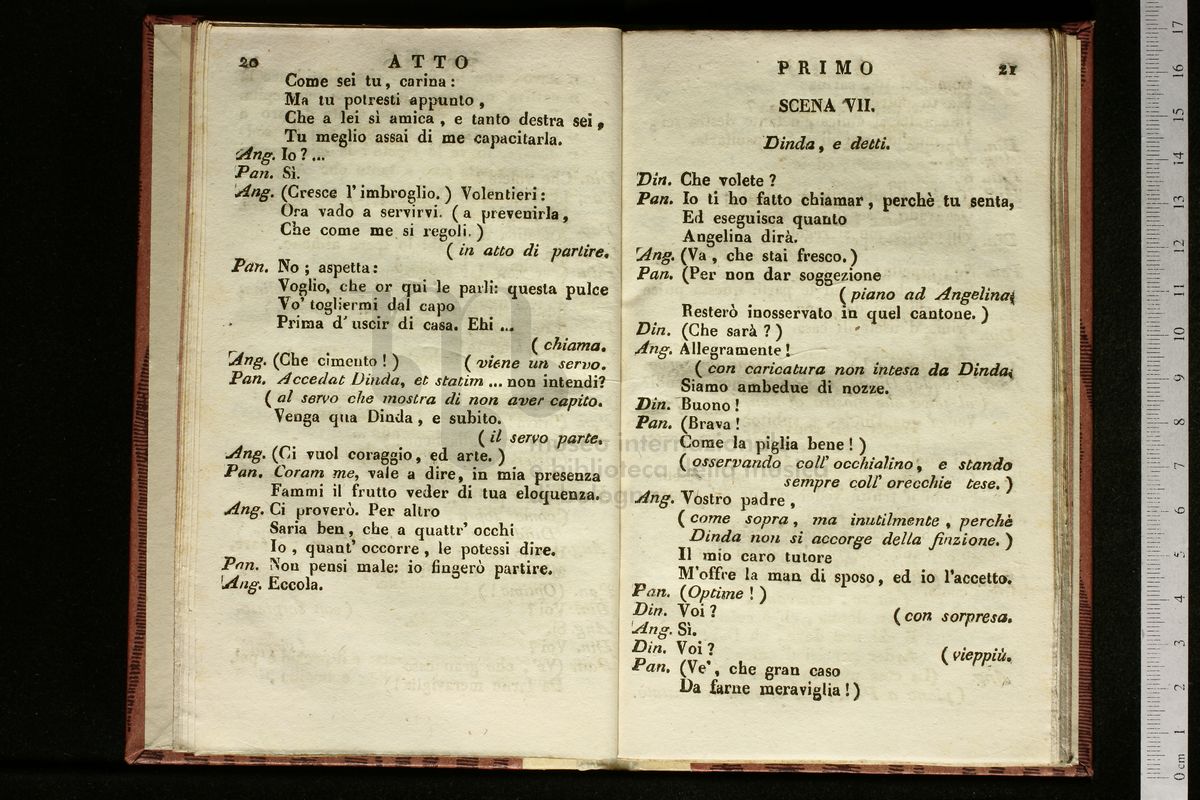 20 ATTO
Come sei tu, carina:
Ma tu potresti appunto,
Che a lei si amica, e tanto destra sei,
Tu meglio assai di me capacitarla.
Ang. Io?...
Pan. Sì.
Ang. (Cresce l'imbroglio.) Volentieri:
Ora vado a servirvi. (a prevenirla,
Che come me si regoli.)
(in atto di partire.
Pan. No; aspetta:
Voglio, che or qui le parli: questa pulce
Vo' togliermi dal capo
Prima d'uscir di casa. Ehi ...
(chiama.
Ang. (Che cimento!) (viene un servo.
Pan. Accedat Dinda, et statim ... non intendi?
(al servo che mostra di non aver capito.
Venga qua Dinda, e subito.
(il servo parte.
Ang. (Ci vuol coraggio, ed arte.)
Pan. Coram me, vale a dire, in mia presenza
Fammi il frutto veder di tua eloquenza.
Ang. Ci proverò. Per altro
Saria ben, che a quattr' occhi
Io, quant' occorre, le potessi dire.
Pan. Non pensi male: io fingerò partire.
Ang. Eccola.
PRIMO 21
SCENA VII.
Dinda, e detti.
Din. Che volete?
Pan. Io ti ho fatto chiamar, perchè tu senta,
Ed eseguisca quanto
Angelina dirà.
Ang. (Va, che stai fresco.)
Pan. (Per non dar soggezione
(piano ad Angelina.
Resterò inosservato in quel cantone.)
Din. (Che sarà?)
Ang. Allegramente!
(con caricatura non intesa da Dinda.
Siamo ambedue di nozze.
Din. Buono!
Pan. (Brava!
Come la piglia bene!)
(osservando coll' occhialino, e stando
sempre coll' orecchie tese.)
Ang. Vostro padre,
(come sopra, ma inutilmente, perchè
Dinda non si accorge della finzione.)
Il mio caro tutore
M'offre la man di sposo, ed io l'accetto.
Pan. (Optime!)
Din. Voi? (con sorpresa.
Ang. Sì.
Din. Voi? (vieppiù.
Pan. (Ve', che gran caso
Da farne meraviglia!)
museo internazionale
e biblioteca della musica
17
16
15
14
13
12
11
10
9
8
7
6
5
4
3
2
1
0 cm